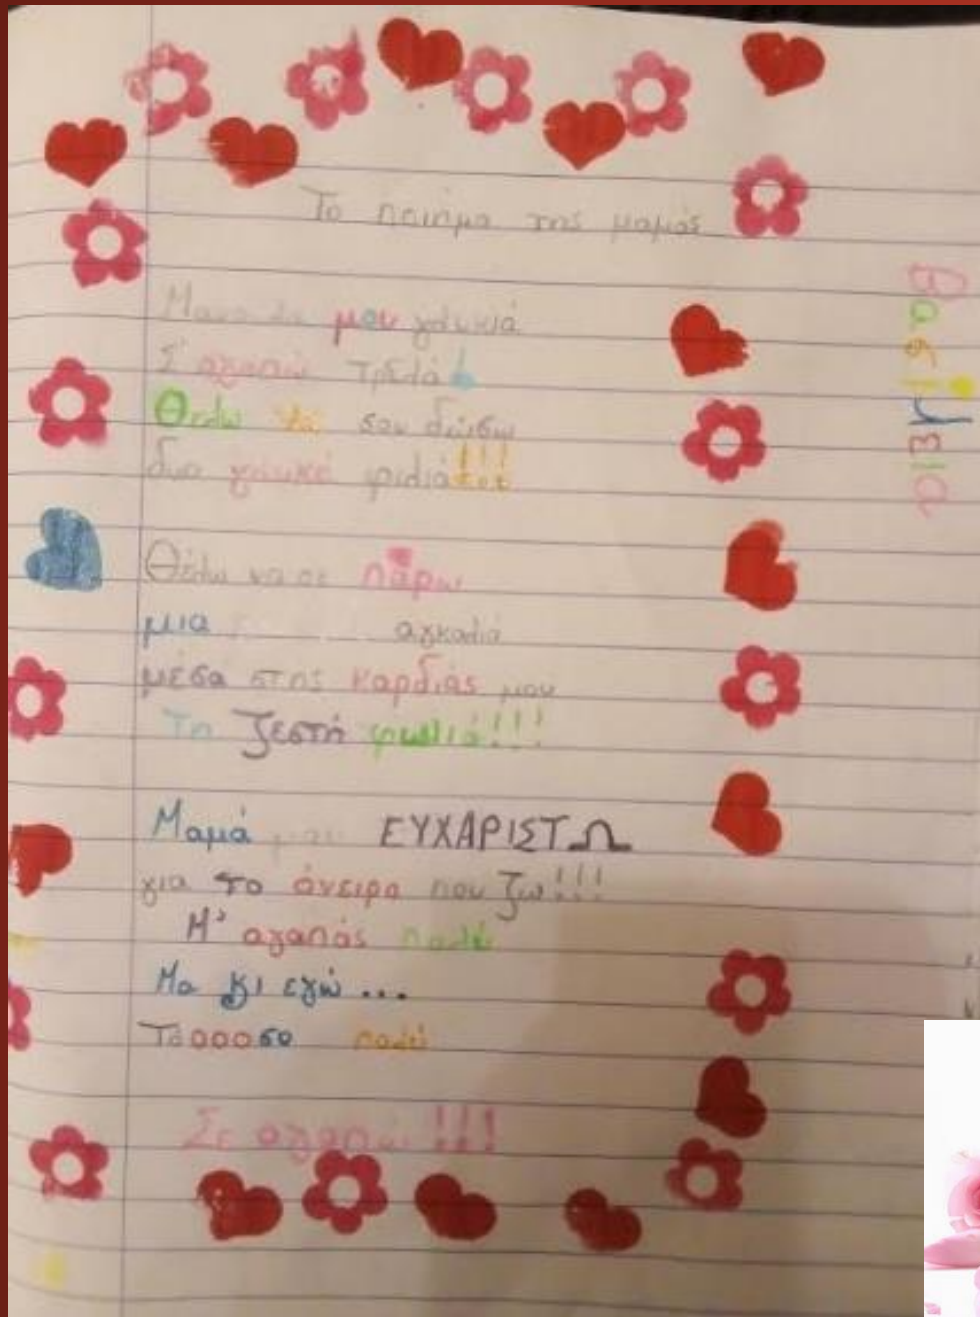 Το ποιημα της μαμάς
Μανούλα μου γλυκιά
Σ' αγαπώ τρελά!
Θελω να σου δώσω
δυο γλυκά φιλιά!!!
Θέλω να σε πάρω
μια αγκαλιά
μέσα στης καρδιάς μου
Τη ζεστή φωλιά!!!
Μαμά μου ΕΥΧΑΡΙΣΤΩ
για το όνειρο που ζω!!!
Μ' αγαπάς πολύ
Μα κι εγώ...
Τόοοοσο πολύ
Σε αγαπώ!!!